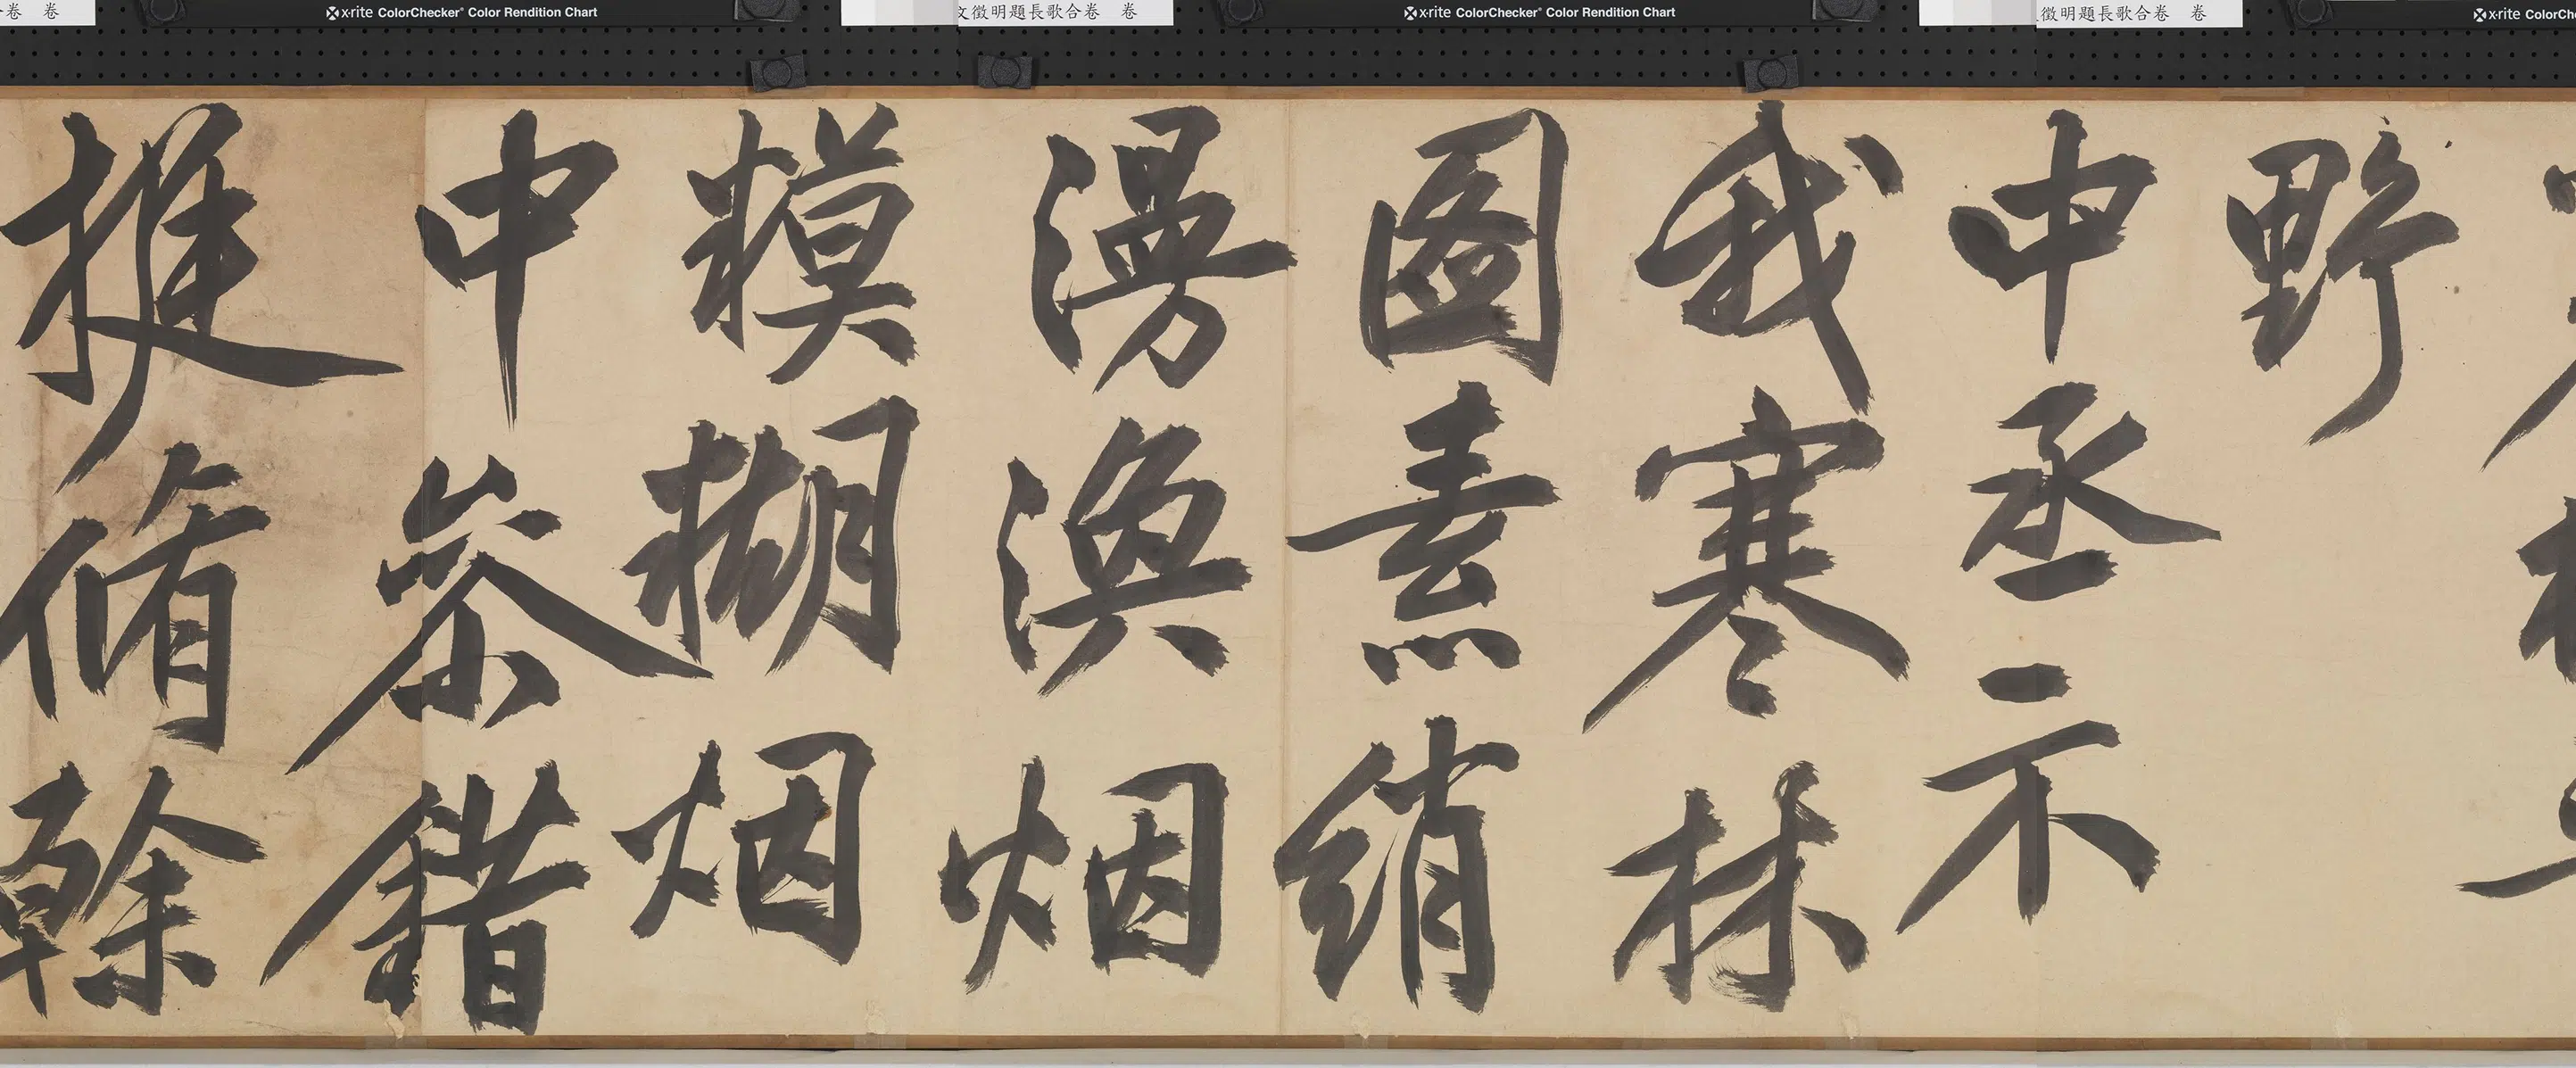 卷 卷
x·rite ColorChecker Color Rendition Chart
文徵明題長歌合卷 卷
x·rite ColorChecker Color Rendition Chart
徵明題長歌合卷 卷
x·rite
野
中丞示
我寒林
圖素綃
漫渙烟
糢糊烟
中參錯
挺脩榦